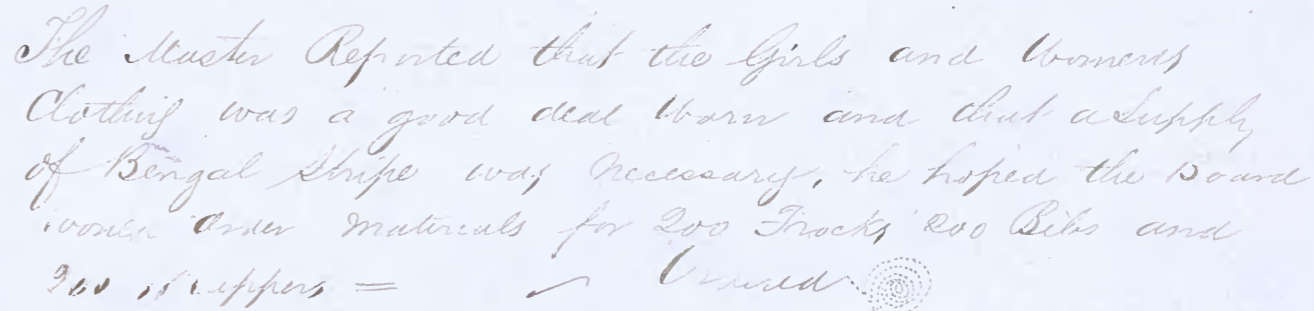 The Master Reported that the Girls and Womens
Clothing was a good deal Worn and that a Supply
of Bengal Stripe was necessary, he hoped the Board
would Order materials for 200 Frocks 200 Bibs and
200 Wrappers = Ordered